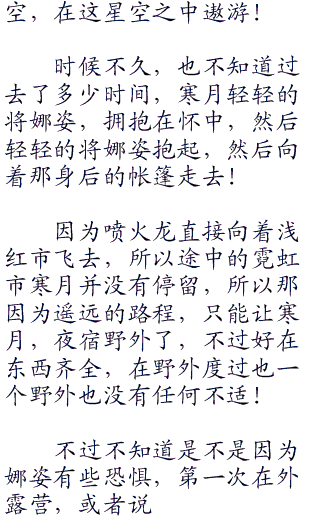 空，在这星空之中遨游！
时候不久，也不知道过
去了多少时间，寒月轻轻的
将娜姿，拥抱在怀中，然后
轻轻的将娜姿抱起，然后向
着那身后的帐篷走去！
因为喷火龙直接向着浅
红市飞去，所以途中的霓虹
市寒月并没有停留，所以那
因为遥远的路程，只能让寒
月，夜宿野外了，不过好在
东西齐全，在野外度过也一
个野外也没有任何不适！
不过不知道是不是因为
娜姿有些恐惧，第一次在外
露营，或者说